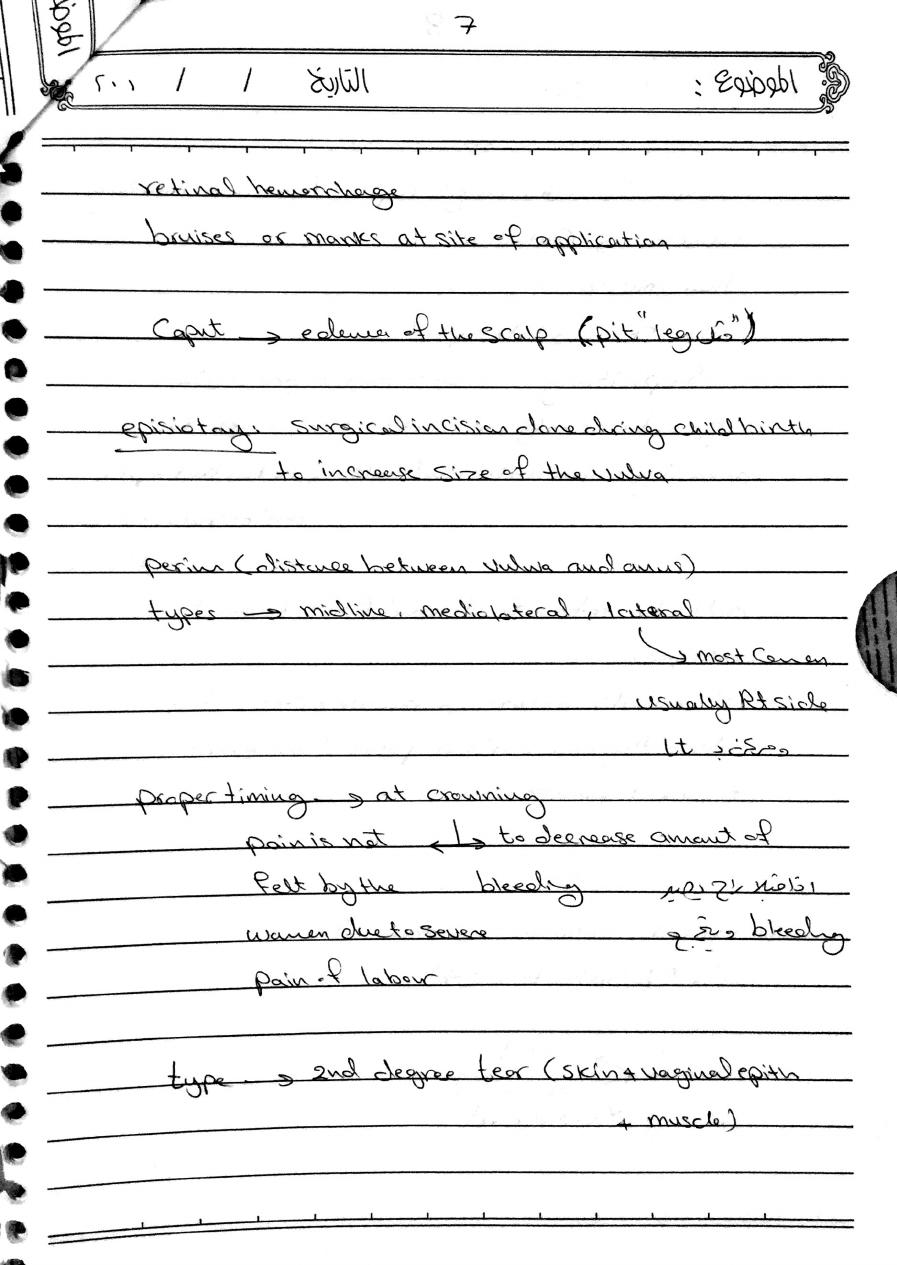 7
الموضوع :
التاريخ / / ٢٠٠١
retinal hemorrhage
bruises or marks at site of application
Caput → edema of the scalp (pit "leg مثل")
episiotay: surgical incision done during child birth
to increase size of the vulva
perium (distance between vulva and anus)
types → midline, mediolateral, lateral
↳ most Common
usually Rt side
Lt
proper timing → at crowning
pain is not ↔ to decrease amount of
felt by the bleeding
women due to severe bleeding
pain of labour
type → 2nd degree tear (skin + vaginal epith
+ muscle)